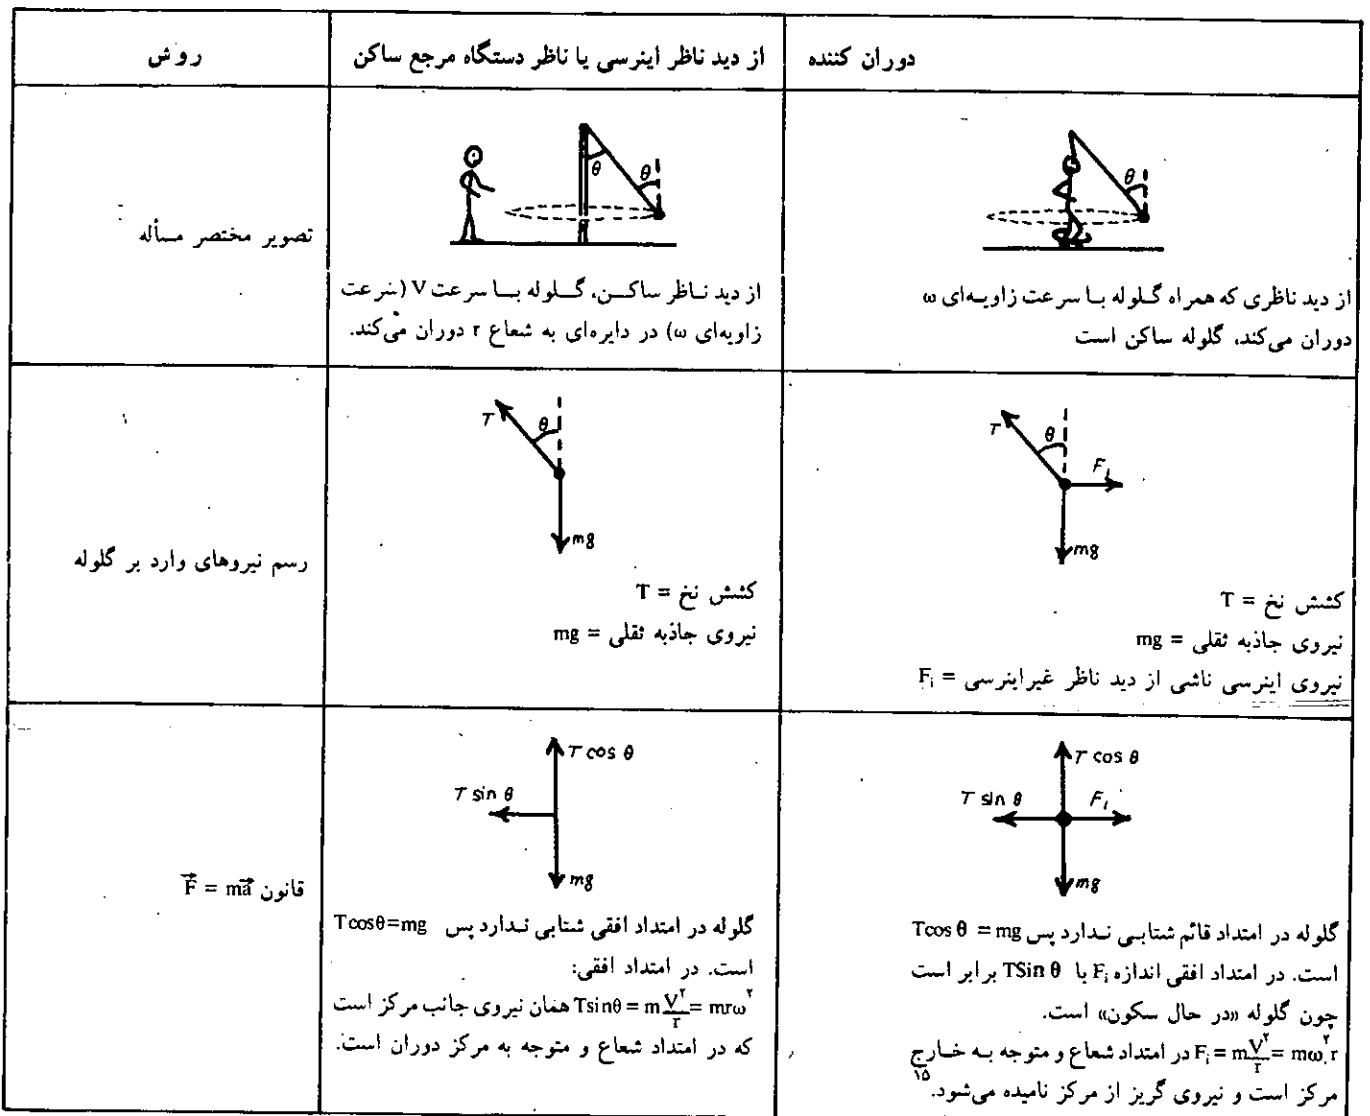 روش
از دید ناظر اینرسی یا ناظر دستگاه مرجع ساکن
دوران کننده
تصویر مختصر مسأله
θ
θ
از دید ناظر ساکن، گلوله با سرعت V (سرعت
زاویه‌ای ω) در دایره‌ای به شعاع r دوران می‌کند.
θ
از دید ناظری که همراه گلوله با سرعت زاویه‌ای ω
دوران می‌کند، گلوله ساکن است
رسم نیروهای وارد بر گلوله
T
θ
mg
کشش نخ = T
نیروی جاذبه ثقلی = mg
T
θ
F_i
mg
کشش نخ = T
نیروی جاذبه ثقلی = mg
نیروی اینرسی ناشی از دید ناظر غیراینرسی = F_i
قانون F⃗ = ma⃗
T cos θ
T sin θ
mg
گلوله در امتداد افقی شتابی ندارد پس Tcosθ=mg
است. در امتداد افقی:
Tsinθ = m V²/r = mrω² همان نیروی جانب مرکز است
که در امتداد شعاع و متوجه به مرکز دوران است.
T cos θ
T sin θ
F_i
mg
گلوله در امتداد قائم شتابی ندارد پس Tcos θ = mg
است. در امتداد افقی اندازه F_i با TSin θ برابر است
چون گلوله «در حال سکون» است.
F_i = m V²/r = mω²r در امتداد شعاع و متوجه به خارج
مرکز است و نیروی گریز از مرکز نامیده می‌شود.۱۵